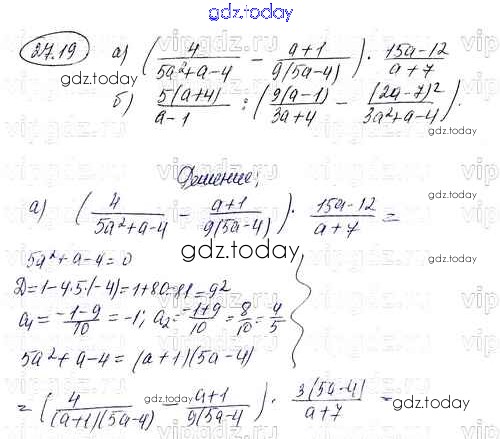 gdz.today
27.19 а) (4/(5a²+a-4) - (a+1)/(9(5a-4))) · (15a-12)/(a+7)
gdz.today
б) 5(a+4)/(a-1) : (9(a-1)/(3a+4) - (2a-7)²/(3a²+a-4)).
gdz.today
Решение;
а) (4/(5a²+a-4) - (a+1)/(9(5a-4))) · (15a-12)/(a+7) =
gdz.today
5a²+a-4=0
D=1-4·5·(-4)=1+80=81=9²
a₁=(-1-9)/10=-1; a₂=(-1+9)/10=8/10=4/5
5a²+a-4=(a+1)(5a-4)
=(4/((a+1)(5a-4)) - (a+1)/(9(5a-4)) · 3(5a-4)/(a+7) =
gdz.today